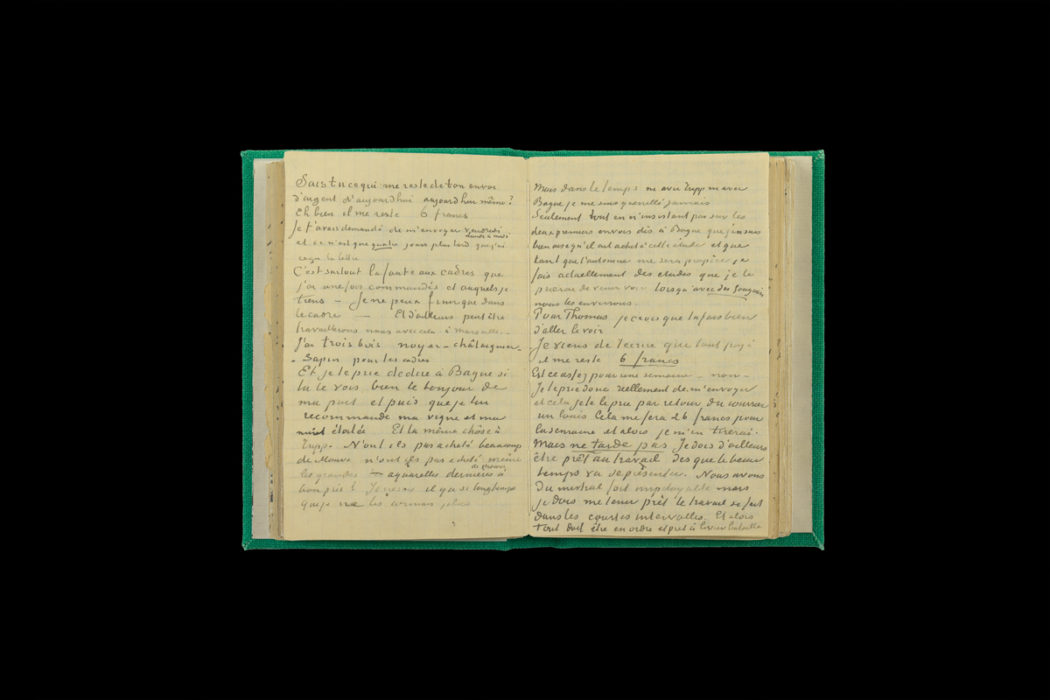 Sais tu ce qui me reste de ton envoi
d'argent d'aujourdhui aujourdhui même?
Eh bien il me reste 6 francs
Je t'avais demandé de m'envoyer vendredi
et ce n'est que quatre jours plus tard que j'ai
reçu ta lettre
C'est surtout la faute aux cadres que
j'ai une fois commandés et auxquels je
tiens — Je ne peux finir que dans
le cadre — Et d'ailleurs peut être
travaillerons nous avec cela à Marseille.—
J'ai trois bois noyer — châtaignier —
— Sapin pour les cadres
Et je te prie de dire à Bague si
tu le vois bien le bonjour de
ma part et puis que je lui
recommande ma vigne et ma
nuit étoilée Et la même chose à
Tripp. N'ont ils pas acheté beaucoup
de Mauve n'ont ils pas acheté même
les grandes — aquarelles dernières
de
à
bon prix? il y a si longtemps
que je ne les plus
Mais dans le temps ni avec Tripp ni avec
Bague je me suis querellé jamais
Seulement tout en n'insistant pas sur les
deux premiers envois dis à Bague que je suis
bien aise qu'il ait acheté cette étude et que
tant que l'automne me sera propice je
fais actuellement des etudes que je le
prierai de venir voir lorsqu'avec des Gauguin
nous les enverrons.
Pour Thomas je crois que tu fais bien
d'aller le voir
Je viens de t'ecrire que tout payé
il me reste 6 francs
Est ce assez pour une semaine — non —
Je te prie donc reellement de m'envoyer
et cela je te le prie par retour du courrier
un louis Cela me fera 26 francs pour
la semaine et alors je m'en tirerai.
Mais ne tarde pas. Je dois d'ailleurs
être prêt au travail des que le beau
temps va se présenter. Nous avons
du mistral fort impitoyable mais
je dois me tenir prêt le travail se fait
dans les courtes intervalles. Et alors
tout doit être en ordre et prêt à livrer bataille